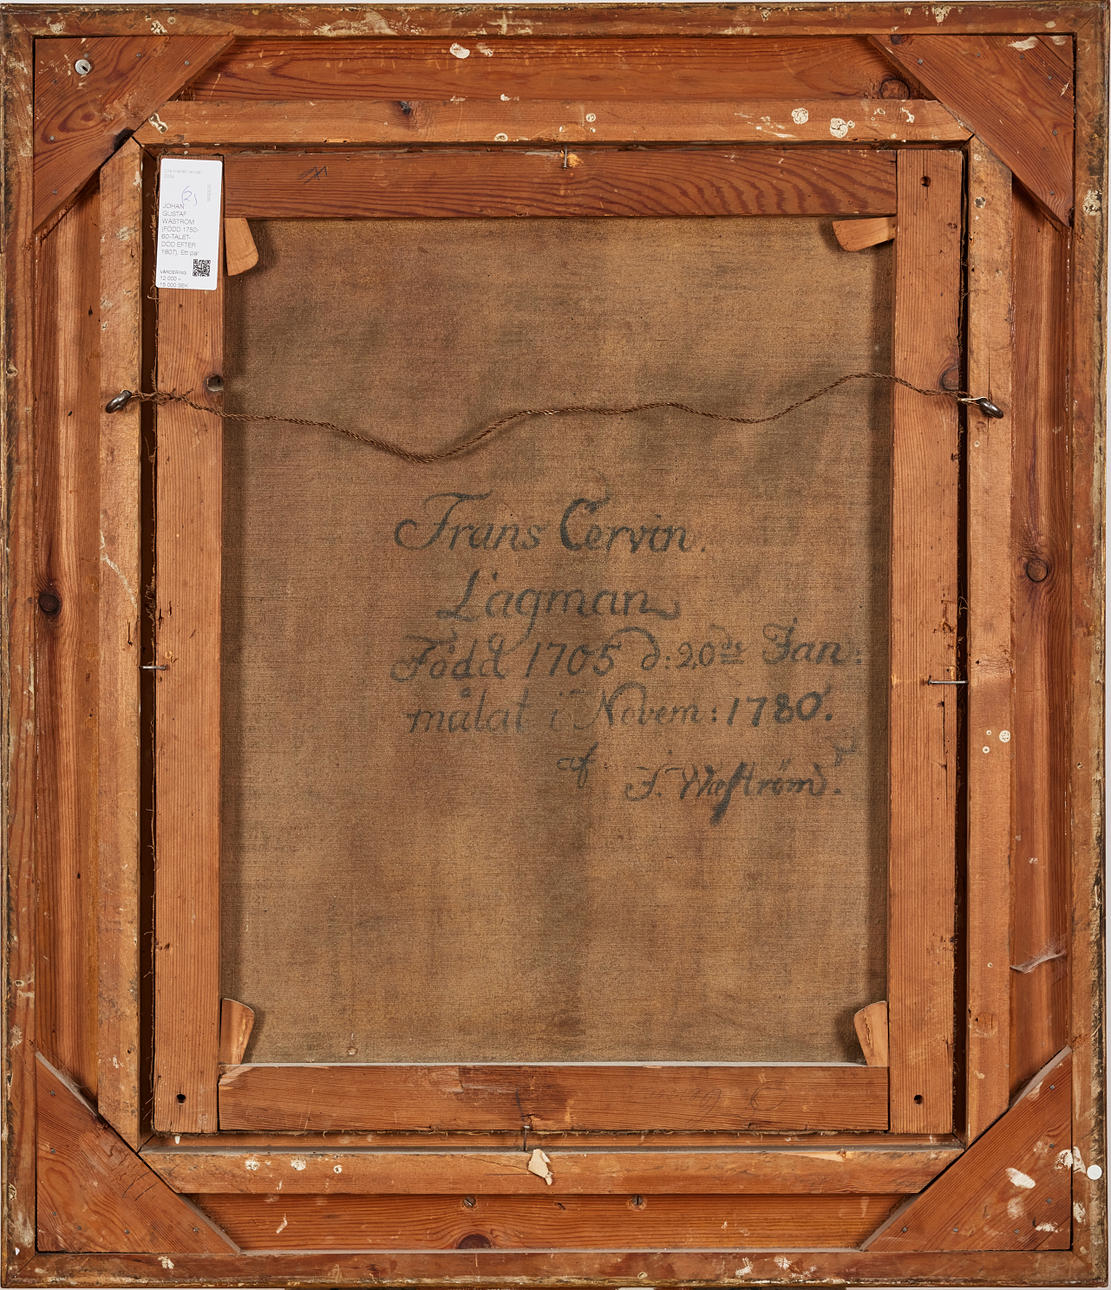 (2)
JOHAN
GUSTAF
WÄSTRÖM
(FÖDD 1750-
60-TALET-
DÖD EFTER
1807). Ett par
VÄRDERING
12 000 –
15 000 SEK
Frans Cervin.
Lagman
Född 1705 d: 20de Jan:
målat i Novem: 1780.
af J. Wæström.